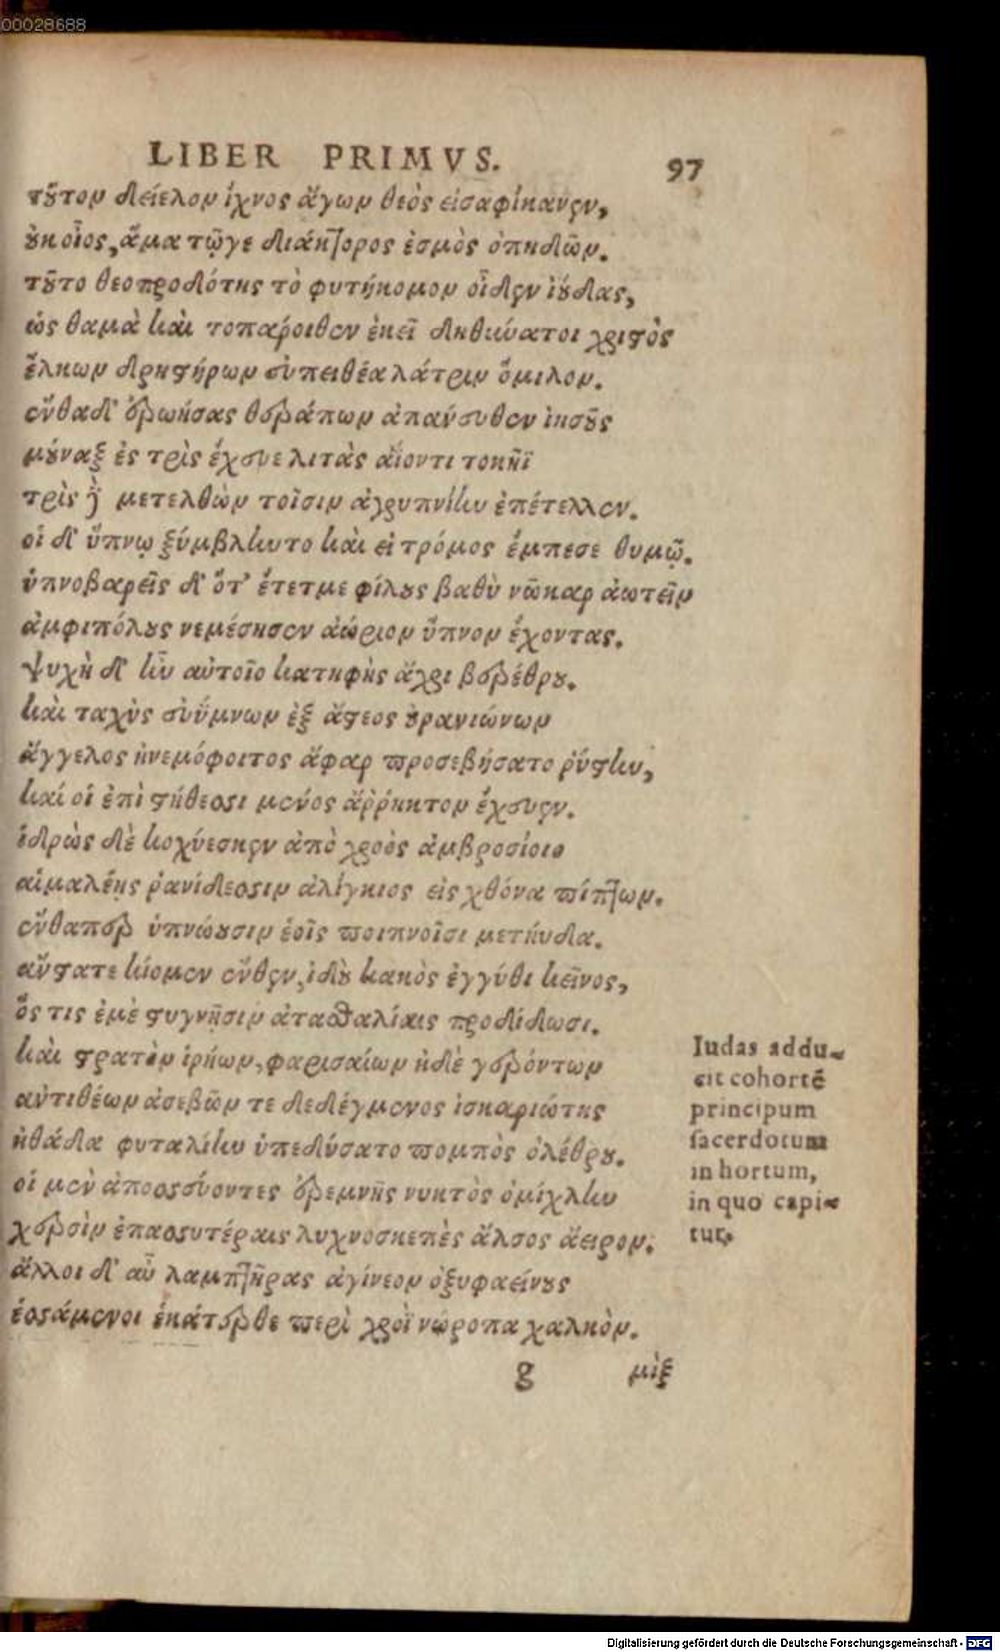 00028688
LIBER PRIMVS. 97
τοῦτον δείελον ἴχνος ἄγων θεὸς εἰσαφίκανεν,
οὐκ οἶος, ἅμα τῷγε διάκτορος ἑσμὸς ὀπηδῶν.
τοῦτο θεοπροδότης τὸ φυτήκομον οἶδεν ἰούδας,
ὡς θαμὰ καὶ τοπάροιθεν ἐκεῖ δηθύνατοι χριστὸς
ἕλκων δρηστήρων εὐπειθέα λάτριν ὅμιλον.
ἔνθα δ' ἐρωήσας θεράπων ἀπανευθεν ἰησοῦς
μούναξ ἐς τρὶς ἔχευε λιτὰς ἀΐοντι τοκῆϊ
τρὶς δὲ μετελθὼν τοῖσιν ἀγρυπνίην ἐπέτελλεν.
οἱ δ' ὕπνῳ ξύμβληντο καὶ εἰ τρόμος ἔμπεσε θυμῷ.
ὑπνοβαρεῖς δ' ὅτ' ἔτετμε φίλους βαθὺ νῶκαρ ἀωτεῖν
ἀμφιπόλους νεμέσησεν ἀώριον ὕπνον ἔχοντας.
ψυχὴ δ' ἦν αὐτοῖο κατηφὴς ἄχρι βερέθρου.
καὶ ταχὺς εὐΰμνων ἐξ ἄστεος οὐρανιώνων
ἄγγελος ἠνεμόφοιτος ἄφαρ προσεβήσατο ῥύστην,
καί οἱ ἐπὶ στήθεσσι μένος ἄῤῥηκτον ἔχευεν.
ἱδρὼς δὲ κοχύεσκεν ἀπὸ χροὸς ἀμβροσίοιο
αἱμαλέῃς ῥανίδεσσιν ἀλίγκιος εἰς χθόνα πίπτων.
ἔνθαπερ ὑπνώουσιν ἑοῖς ποιπνοῖσι μετηύδα.
αὔστατε κίομεν ἔνθεν, ἰδοὺ κακὸς ἐγγύθι κεῖνος,
ὅς τις ἐμὲ στυγνῇσιν ἀτασθαλίαις προδίδωσι.
καὶ στρατὸν ἱρήων, φαρισαίων ἠδὲ γερόντων
αὐτιθέων ἀσεβῶν τε δεδέγμενος ἰσκαριώτης
ἠθάδα φυταλίην ὑπεδύσατο πομπὸς ὀλέθρου.
οἱ μὲν ἀποσσύοντες ἐρεμνῆς νυκτὸς ὀμίχλην
χερσὶν ἐπασσυτέραις λυχνοσκεπὲς ἄλσος ἄειρον.
ἄλλοι δ' αὖ λαμπτῆρας ἀγίνεον ὀξυφαείνους
ἑσσάμενοι ἑκάτερθε περὶ χροῒ νώροπα χαλκὸν.
Iudas addu-
cit cohortẽ
principum
sacerdotum
in hortum,
in quo capi-
tur.
g μὶξ
Digitalisierung gefördert durch die Deutsche Forschungsgemeinschaft - DFG